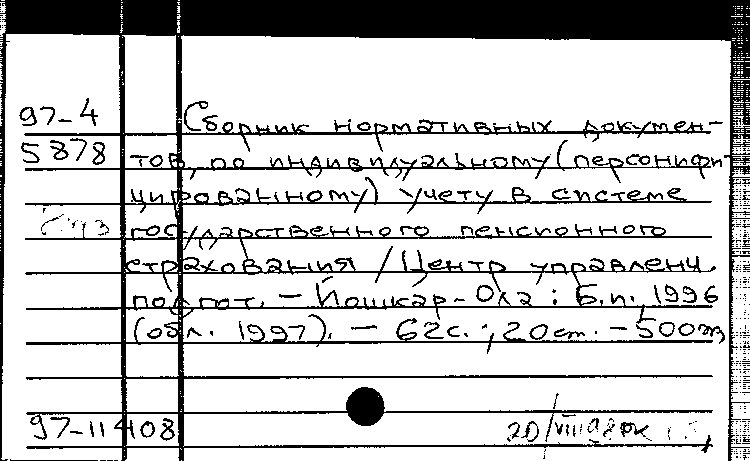 97-4
Сборник нормативных докумен-
5878
тов, по индивидуальному (персонифи-
цированному) учету в системе
государственного пенсионного
страхования / Центр управлени.
подгот. - Йошкар-Ола: Б.и., 1996
(обл. 1997). - 62с.; 20см. - 500экз
97-11408
20/VIII 98